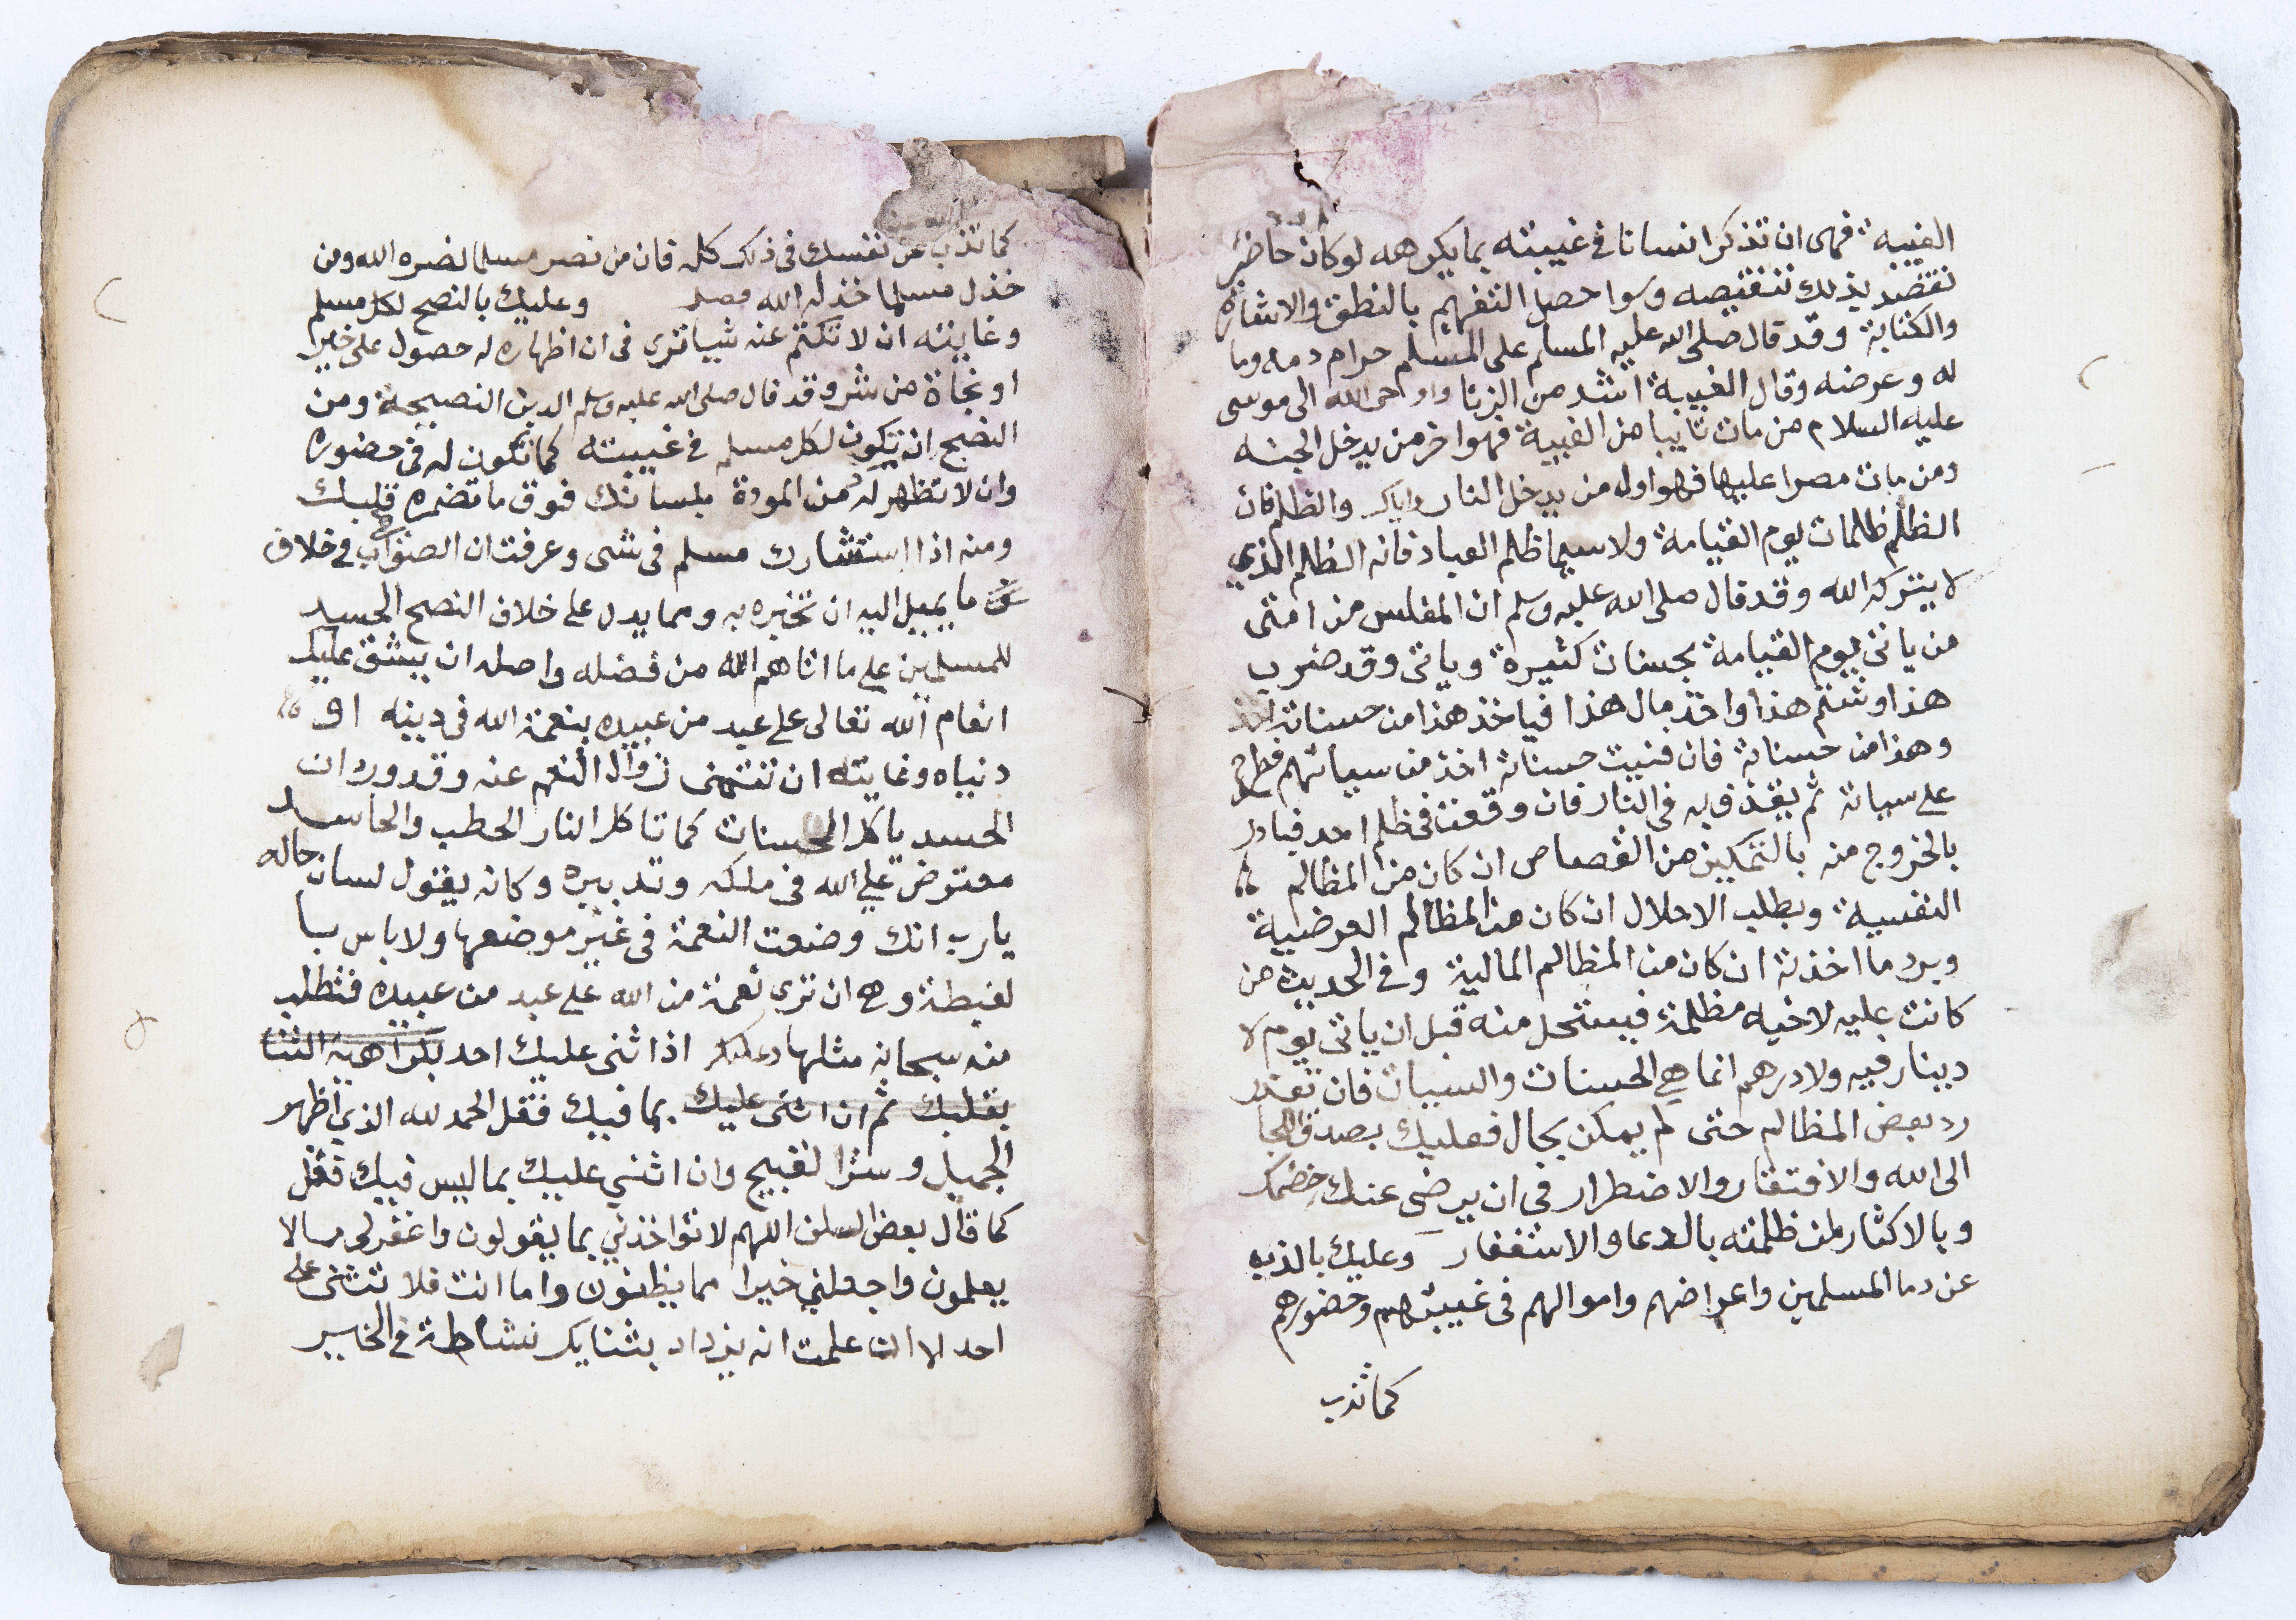 الغيبة فهى ان تذكر انسانا في غيبته بما يكرهه لوكان حاضر
تقصد بذلك تنقيصه وسوا حصل التفهيم بالنطق والاشارة
والكتابة وقد قال صلى الله عليه المسلم على المسلم حرام دمه وما
له وعرضه وقال الغيبة اشد من الزنا واوحى الله الى موسى
عليه السلام من مات تايبا من الغيبة فهوا خر من يدخل الجنه
ومن مات مصرا عليها فهواول من يدخل النار واياك والظلم فان
الظلم ظلمات يوم القيامة ولاسيما ظلم العباد فانه الظلم الذي
لا يتركه الله وقد قال صلى الله عليه وسلم ان المفلس من امتى
من ياتى يوم القيامة بحسنات كثيرة وياتى وقد ضرب
هذا وشتم هذا واخذ مال هذا فياخذ هذا من حسناته
وهذا من حسناته فان فنيت حسناته اخذ من سياتهم فطرح
على سياته ثم يقذف به فى النار فان وقعت فى ظلم احد فبادر
بالخروج منه بالتمكين من القصاص ان كان من المظالم
النفسية وبطلب الاحلال ان كان من المظالم العرضية
وبرد ما اخذته ان كان من المظالم المالية وفي الحديث من
كانت عليه لاخيه مظلمة فيستحل منه قبل ان ياتى يوم لا
دينار فيه ولا درهم انما هي الحسنات والسيات فان تعذر
رد بعض المظالم حتى لم يمكن بحال فعليك بصدق اللجا
الى الله والافتقار والاضطرار فى ان يرضى عنك خصمك
وبالاكثار لمن ظلمته بالدعا والاستغفار وعليك بالذب
عن دما المسلمين واعراضهم واموالهم فى غيبتهم وحضورهم
كما تذب
كما تذب عن نفسك فى ذلك كله فان من نصر مسلما نصره الله ومن
خذل مسلما خذله الله فصل وعليك بالنصح لكل مسلم
وغايته ان لا تكتم عنه شيا ترى فى ان اظهاره له حصول على خير
او نجاة من شر وقد قال صلى الله عليه وسلم الدين النصيحة ومن
النصح ان تكون لكل مسلم في غيبته كما تكون له فى حضوره
وان لا تظهر له من المودة بلسانك فوق ما تضمره قلبك
ومنه اذا استشارك مسلم فى شى وعرفت ان الصواب في خلاف
ما يميل اليه ان تخبره به ومما يدل على خلاف النصح الحسد
للمسلمين على ما اتاهم الله من فضله واصله ان يشق عليك
انعام الله تعالى على عبد من عبيده بنعمة الله فى دينه او
دنياه وغايته ان تتمنى زوال النعم عنه وقد ورد ان
الحسد ياكل الحسنات كما تاكل النار الحطب والحاسد
معترض على الله فى ملكه وتدبيره وكانه يقول لسان حاله
يارب انك وضعت النعمة فى غير موضعها ولاباس با
لغبطة وهي ان ترى نعمة من الله على عبد من عبيده فتطلب
منه سبحانه مثلها وعليك اذا اثنى عليك احد بكراهية الثنا
بقلبك ثم ان اثنى عليك بما فيك فقل الحمد لله الذي اظهر
الجميل وستر القبيح وان اثني عليك بما ليس فيك فقل
كما قال بعض السلف اللهم لا تواخذني بما يقولون واغفرلى مالا
يعلمون واجعلني خيرا مما يظنون واما انت فلا تثنى على
احد الا ان علمت انه يزداد بثنايك نشاطة في الخير